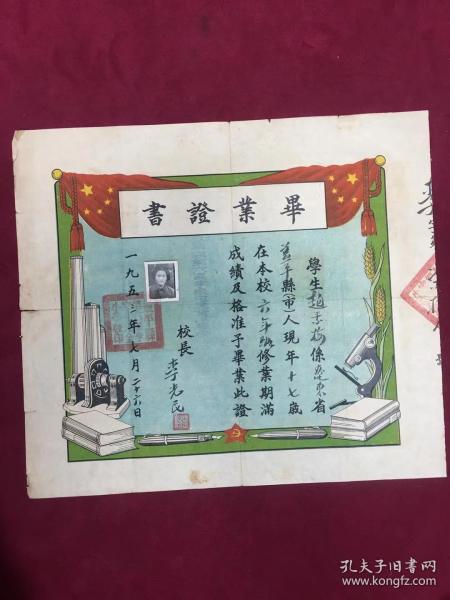 書證業畢
學生趙素梅係遼東省
蓋平縣(市)人現年十七歲
在本校六年級修業期滿
成績及格准予畢業此證
校長 李光民
一九五三年七月二十六日
孔夫子旧书网
www.kongfz.com